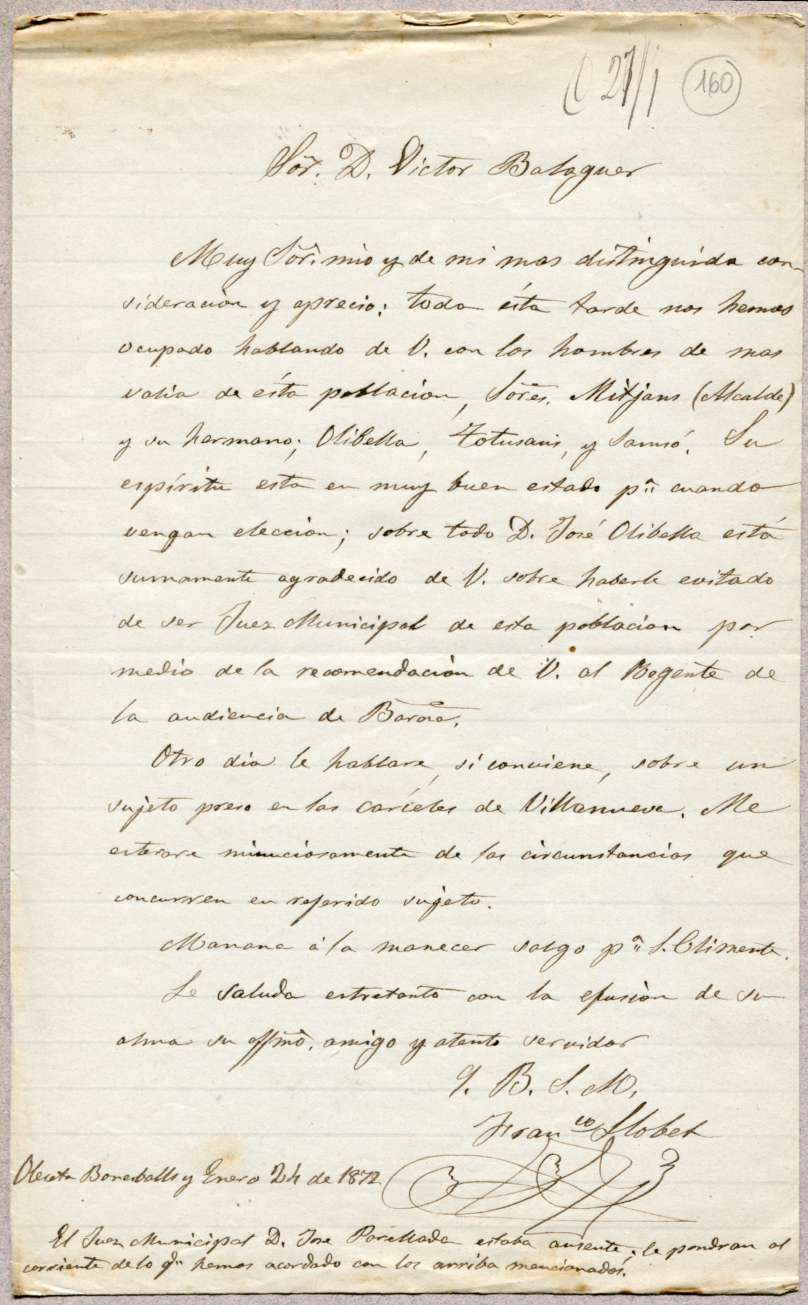 C 27/1 160
Sor. D. Victor Balaguer
Muy Sor. mio y de mi mas distinguida con-
sideracion y aprecio: toda ésta tarde nos hemos
ocupado hablando de V. con los hombres de mas
valia de ésta poblacion, Sores. Mitjans (Alcalde)
y su hermano; Olibella, Totusaus, y Samsó. Su
espíritu esta en muy buen estado pa cuando
vengan eleccion; sobre todo D. José Olibella está
sumamente agradecido de V. sobre haberle evitado
de ser Juez Municipal de esta poblacion por
medio de la recomendación de V. al Regente de
la audiencia de Barna.
Otro dia le hablare, si conviene, sobre un
sujeto preso en las carceles de Villanueva. Me
enterare minuciosamente de las circunstancias que
concurren en referido sujeto.
Manana á la manecer salgo pa S. Climente.
Le saluda entretanto con la efusión de su
alma su affmo. amigo y atento servidor
q. B. S. M.
Franco Llobet
Olesa Bonesballs y Enero 24 de 1872
El Juez Municipal D. Jose Parellada estaba ausente; le pondran al
corriente de lo qe hemos acordado con los arriba mencionados.